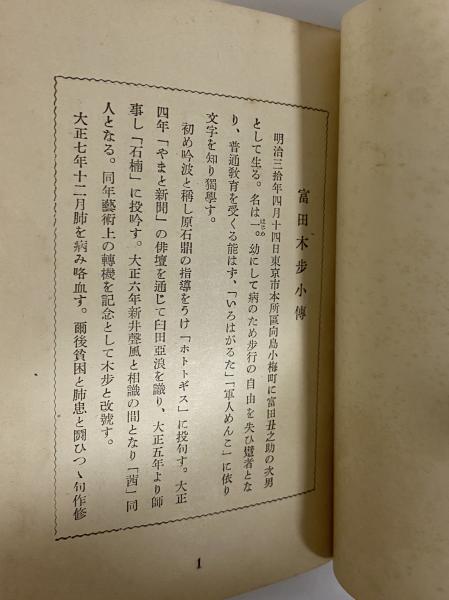 富田木歩小傳
明治三拾年四月十四日東京市本所區向島小梅町に富田丑之助の次男
として生る。名は一。幼にして病のため歩行の自由を失ひ躄者とな
はじめ
り、普通敎育を受くる能はず、「いろはがるた」「軍人めんこ」に依り
文字を知り獨學す。
初め吟波と稱し原石鼎の指導をうけ「ホトトギス」に投句す。大正
四年「やまと新聞」の俳壇を通じて臼田亞浪を識り、大正五年より師
事し「石楠」に投吟す。大正六年新井聲風と相識の間となり「茜」同
人となる。同年藝術上の轉機を記念として木歩と改號す。
大正七年十二月肺を病み咯血す。爾後貧困と肺患と鬪ひつゝ句作修
1